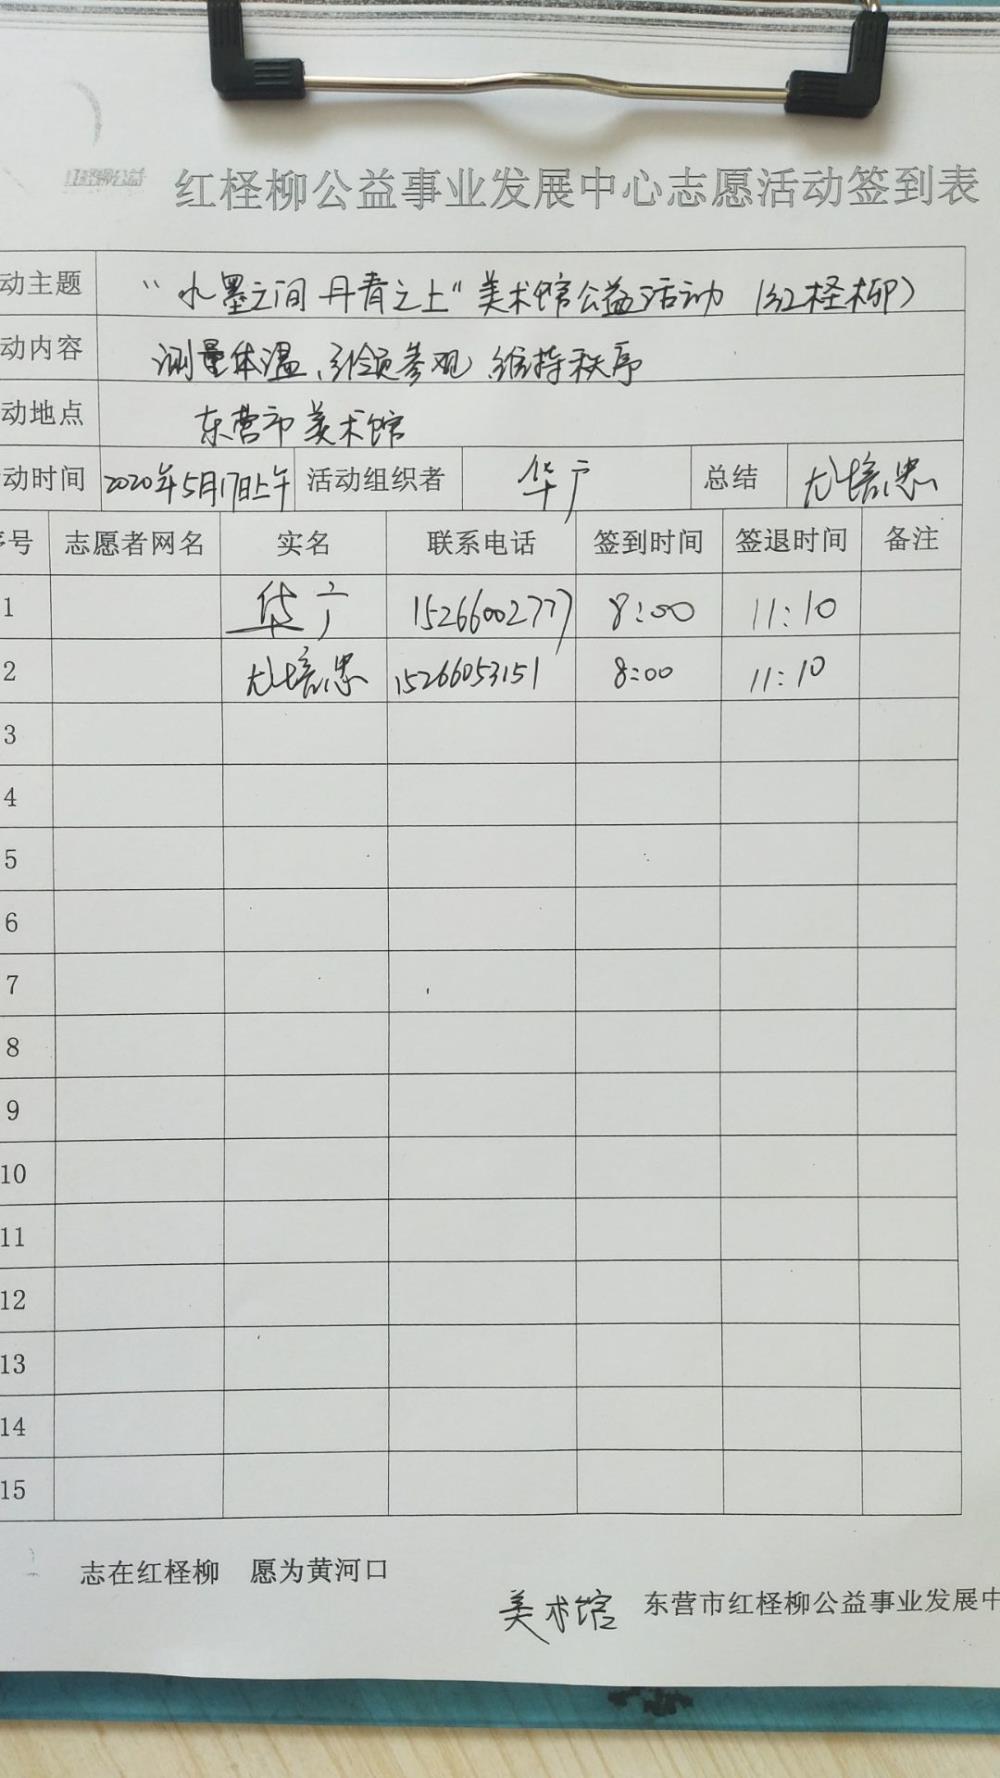 红柽柳公益
红柽柳公益事业发展中心志愿活动签到表
动主题 “水墨之间 丹青之上”美术馆公益活动（红柽柳）
动内容 测量体温、引领参观、维持秩序
动地点 东营市美术馆
动时间 2020年5月17日上午 活动组织者 华广 总结 尤培忠
序号 志愿者网名 实名 联系电话 签到时间 签退时间 备注
1 华广 15266002777 8:00 11:10
2 尤培忠 15266053151 8:00 11:10
3
4
5
6
7
8
9
10
11
12
13
14
15
志在红柽柳 愿为黄河口
美术馆 东营市红柽柳公益事业发展中